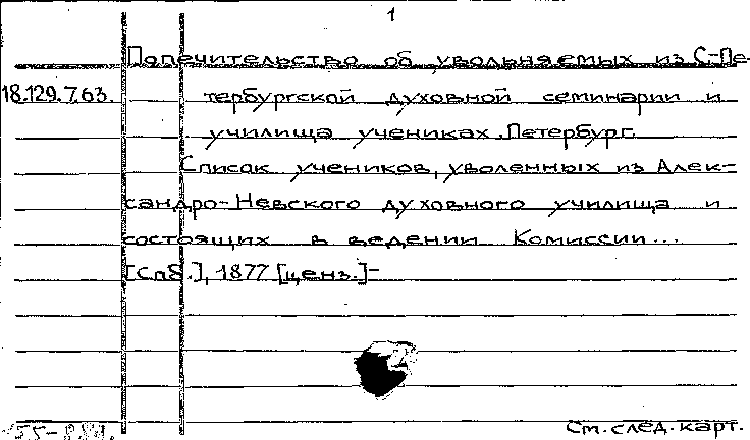 1
Попечительство об увольняемых из С-Пе-
18.129.7.63. тербургской духовной семинарии и
училища учениках. Петербург.
Список учеников, уволенных из Алек-
сандро-Невского духовного училища и
состоящих в ведении Комиссии...
[Спб.], 1877 [ценз.]-
См. след. карт.